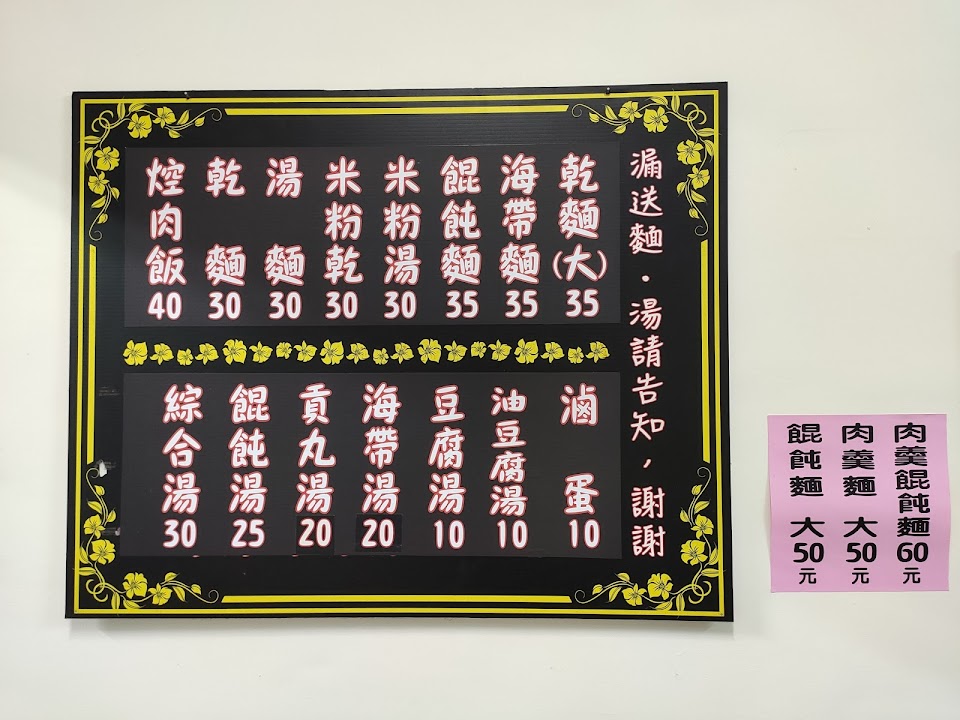 漏送麵．湯請告知，謝謝
乾麵(大)35
海帶麵35
餛飩麵35
米粉湯30
米粉乾30
湯麵30
乾麵30
焢肉飯40
滷蛋10
油豆腐湯10
豆腐湯10
海帶湯20
貢丸湯20
餛飩湯25
綜合湯30
肉羹餛飩麵60元
肉羹麵 大50元
餛飩麵 大50元